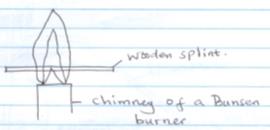 wooden splint.
chimney of a Bunsen
burner